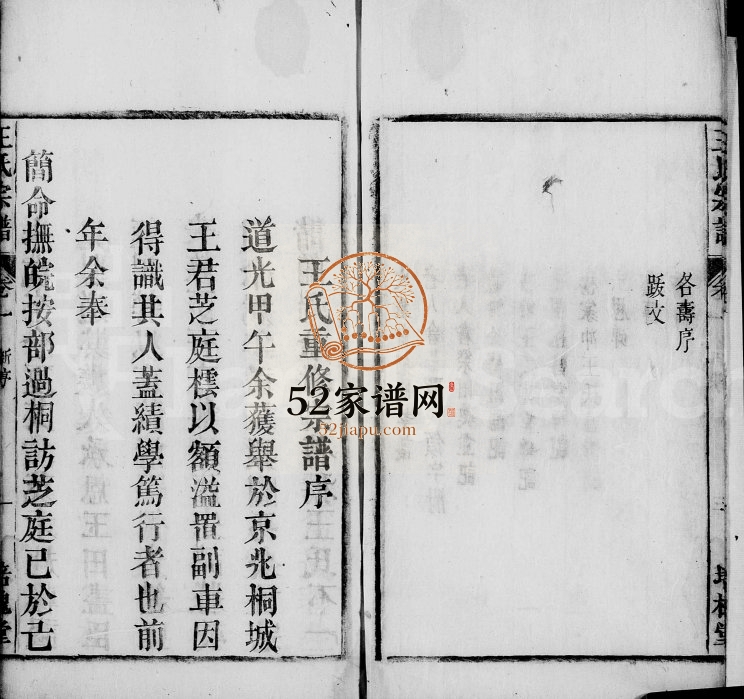 各壽序
跋文
王氏重修宗譜序
道光甲午余獲舉於京兆桐城
王君芝庭櫄以額溢置副車因
得識其人蓋績學篤行者也前
年余奉
簡命撫皖按部過桐訪芝庭已於己
王氏宗譜
卷一
新序
一
52家谱网
52jiapu.com